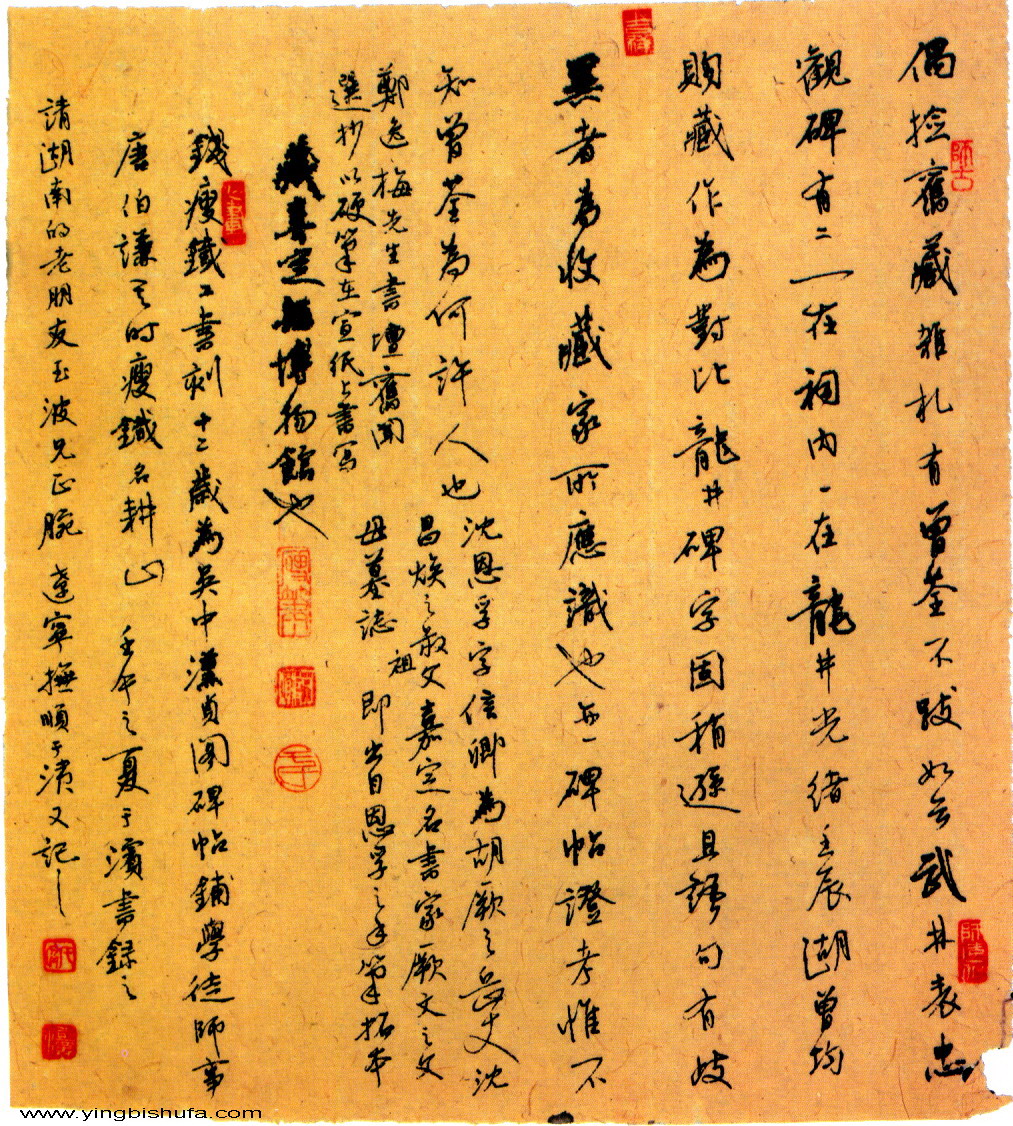 偶捡舊藏雜札有曾荃不跋如云武林袁忠
觀碑有二一在祠内一在龍井光绪壬辰湖曾均
购藏作為對比龍井碑字固稍遜且語句有歧
異者為收藏家所應識也每一碑帖證考惟不
知曾荃為何許人也
沈恩孚字信卿為胡厥之岳丈沈
昌焕之叔父嘉定名書家厥文之父
祖
母墓誌 即出自恩孚之手筆拓本
鄭逸梅先生書壇舊聞
選抄以硬筆在宣纸上書写
藏嘉定博物館也
錢瘦鐵工書刻十二歲為吳中漢貞阁碑帖鋪學徒師事
唐伯謙其时瘦鐵名耕山 壬午之夏于濱書録之
請湖南的老朋友玉波兄正腕 遼寧撫順于濱又記
師古
www.yingbishufa.com